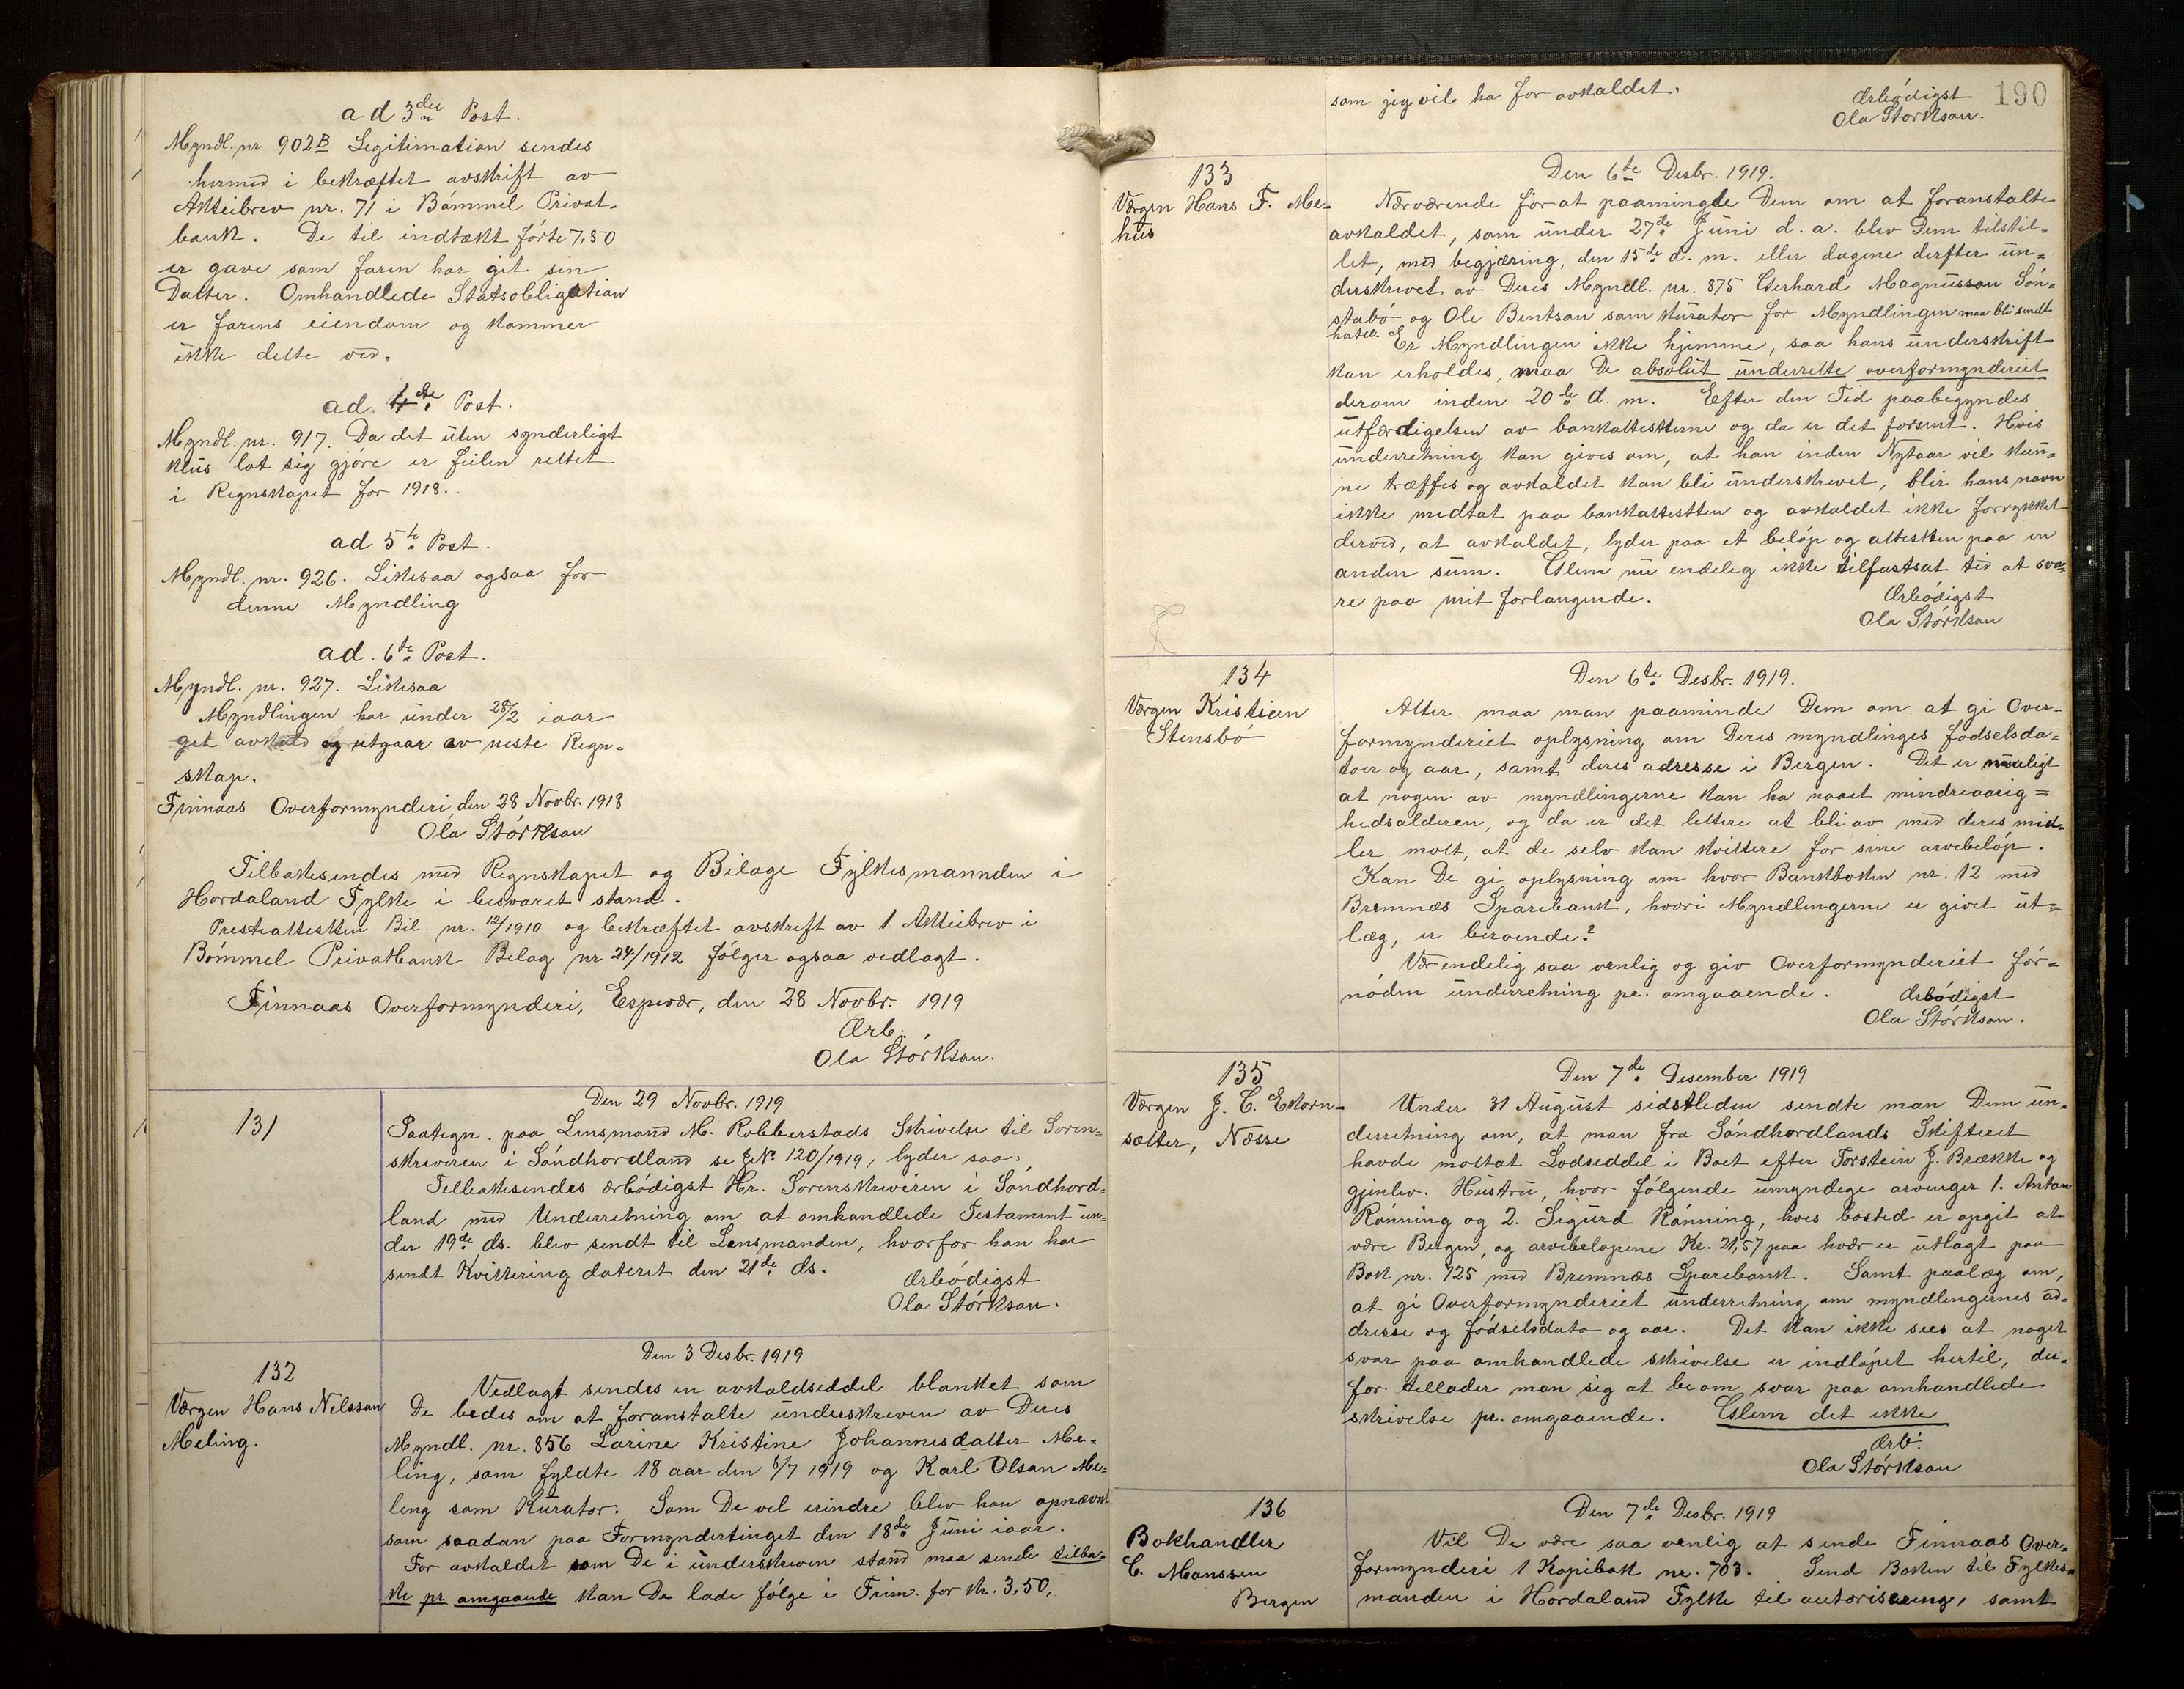 ad 3die Post.
Myndl. nr 902B Legitimation sendes
hermed i bekræftet avskrift av
Aktiebrev nr. 71 i Bömmel Privat-
bank. De til indtækt förte 7,50
er gave som faren har git sin
Datter. Omhandlede Statsobligation
er farens eiendom og kommer
ikke dette ved.
ad. 4de Post.
Myndl. nr. 917. Da det uten synderligt
klus lot sig gjöre er feilen rettet
i Regnskapet for 1918.
ad 5te Post.
Myndl. nr. 926. Likesaa ogsaa for
denne Myndling
ad. 6te Post.
Myndl. nr. 927. Likesaa
Myndlingen har under 28/2 iaar
get avkald og utgaar av neste Regn-
skap.
Finnaas Overformynderi den 28 Novbr. 1918
Ola Störkson
Tilbakesendes med Regnskapet og Bilage Fylkesmannden i
Hordaland Fylke i besvaret stand.
Presteattesten Bil. nr. 12/1910 og bekræftet avskrift av 1 Aktiebrev i
Bömmel Privatbank Belag nr 24/1912 fölger ogsaa vedlagt.
Finnaas Overformynderi, Espevær, den 28 Novbr. 1919
Ærb.
Ola Störkson.
131
Den 29 Novbr. 1919
Paategn. paa Lensmand M. Robberstads Skrivelse til Soren-
skriveren i Söndhordland se J.No. 120/1919, lyder saa:
Telbakesendes ærbödigst Hr. Sorenskriveren i Söndhord-
land med Underretning om at omhandlede Testament un-
der 19de ds. blev sendt til Lensmanden, hvorfor han har
sendt Kvittering dateret den 21de ds.
Ærbödigst
Ola Störkson.
132
Værgen Hans Nelsson
Meling.
Den 3 Desbr. 1919
Vedlagt sendes en avkaldseddel blanket som
De bedes om at foranstalte underskreven av Deres
Myndl. nr. 856 Larine Kristine Johannesdatter Me-
ling, som fyldte 18 aar den 8/7 1919 og Karl Olsan Me-
leng som Kurator. Som De vel erindre blev han opnævnt
som saadan paa Formyndertinget den 18de Juni iaar.
For avkaldet som De i underskreven stand maa sende tilba-
ke pr omgaaende kan De lade fölge i Frim. for Kr. 3,50,
190
som jeg vil ha for avkaldet.
Ærbödigst
Ola Störkson.
133
Værgen Hans F. Me-
hus
Den 6te Desbr. 1919.
Nærværende for at paamingde Dem om at foranstalte
avkaldet, som under 27de Juni d. a. blev Dem tilstil-
let, med begjæring, den 15de d. m. eller dagene derfter un-
derskrevet av Deres Myndl. nr. 875 Gerhard Magnusson Sön-
stabö og Ole Bentson som Kurator for Myndlingen maa bli sendt
hertil. Er Myndlingen ikke hjemme, saa hans underskrift
kan erholdes, maa De absolut underrette overformynderiet
derom inden 20de d. m. Efter den Tid paabegyndes
utfærdigelsen av bankattesterne og da er det forsent. Hvis
underretning kan gives om, at han inden Nytaar vil kun-
ne træffes og avkaldet kan bli underskrevet, blir hans navn
ikke medtat paa bankattesten og avkaldet ikke forrykket
derved, at avkaldet, lyder paa et belöp og attesten paa en
anden sum. Glem nu endelig ikke tilfastsat tid at sva-
re paa mit forlangende.
Ærbödigst
Ola Störkson
134
Værgen Kristian
Stensbö
Den 6te Desbr. 1919.
Atter maa man paaminde Dem om at gi Over-
formynderiet oplysning om Deres myndlinges födselsda-
toer og aar, samt deres adresse i Bergen. Det er muligt
at nogen av myndlingerne kan ha naaet mindreaarig-
hedsalderen, og da er det lettere at bli av med deres mid-
ler mott, at de selv kan kvittere for sine arvebelöp.
Kan De gi oplysning om hvor Bankboken nr. 12 med
Bremnæs Sparebank, hvori Myndlingerne er givet ut-
læg, er beroende?
Vær endelig saa venlig og giv Overformynderiet for-
nöden underretning pr. omgaaende.
Ærbödigst
Ola Störkson.
135
Værgen J. C. Ekorn-
sæter, Næsse
Den 7de Desember 1919
Under 31 August sidstleden sendte man Dem un-
derretning om, at man fra Söndhordlands Skifteret
havde mottat Lodseddel i Boet efter Torstein J. Brække og
gjenlev. Hustru, hvor fölgende umyndege arvenger 1. Anton
Rönning og 2. Sigurd Rönning, hves bosted er opgit at
være Bergen, og arvebelopene Kr. 21,57 paa hvær er utlagt paa
Bok nr. 725 med Bremnæs Sparebank. Samt paalæg om,
at gi Overformynderiet underretning om myndlingernes ad-
dresse og födselsdato og aar. Det kan ikke sees at noget
svar paa omhandlede skrivelse er indlöpet hertil, der-
for tellader man sig at be om svar paa omhandlede
skrivelse pr. omgaaende. Glem det ikke
Ærb.
Ola Störkson
136
Bokhandler
C. Monssen
Bergen
Den 7de Desbr. 1919
Vil De være saa venlig at sende Finnaas Over-
formynderi 1 Kopibok nr. 703. Send Boken til Fylkes-
manden i Hordaland Fylke til autorisering, samt